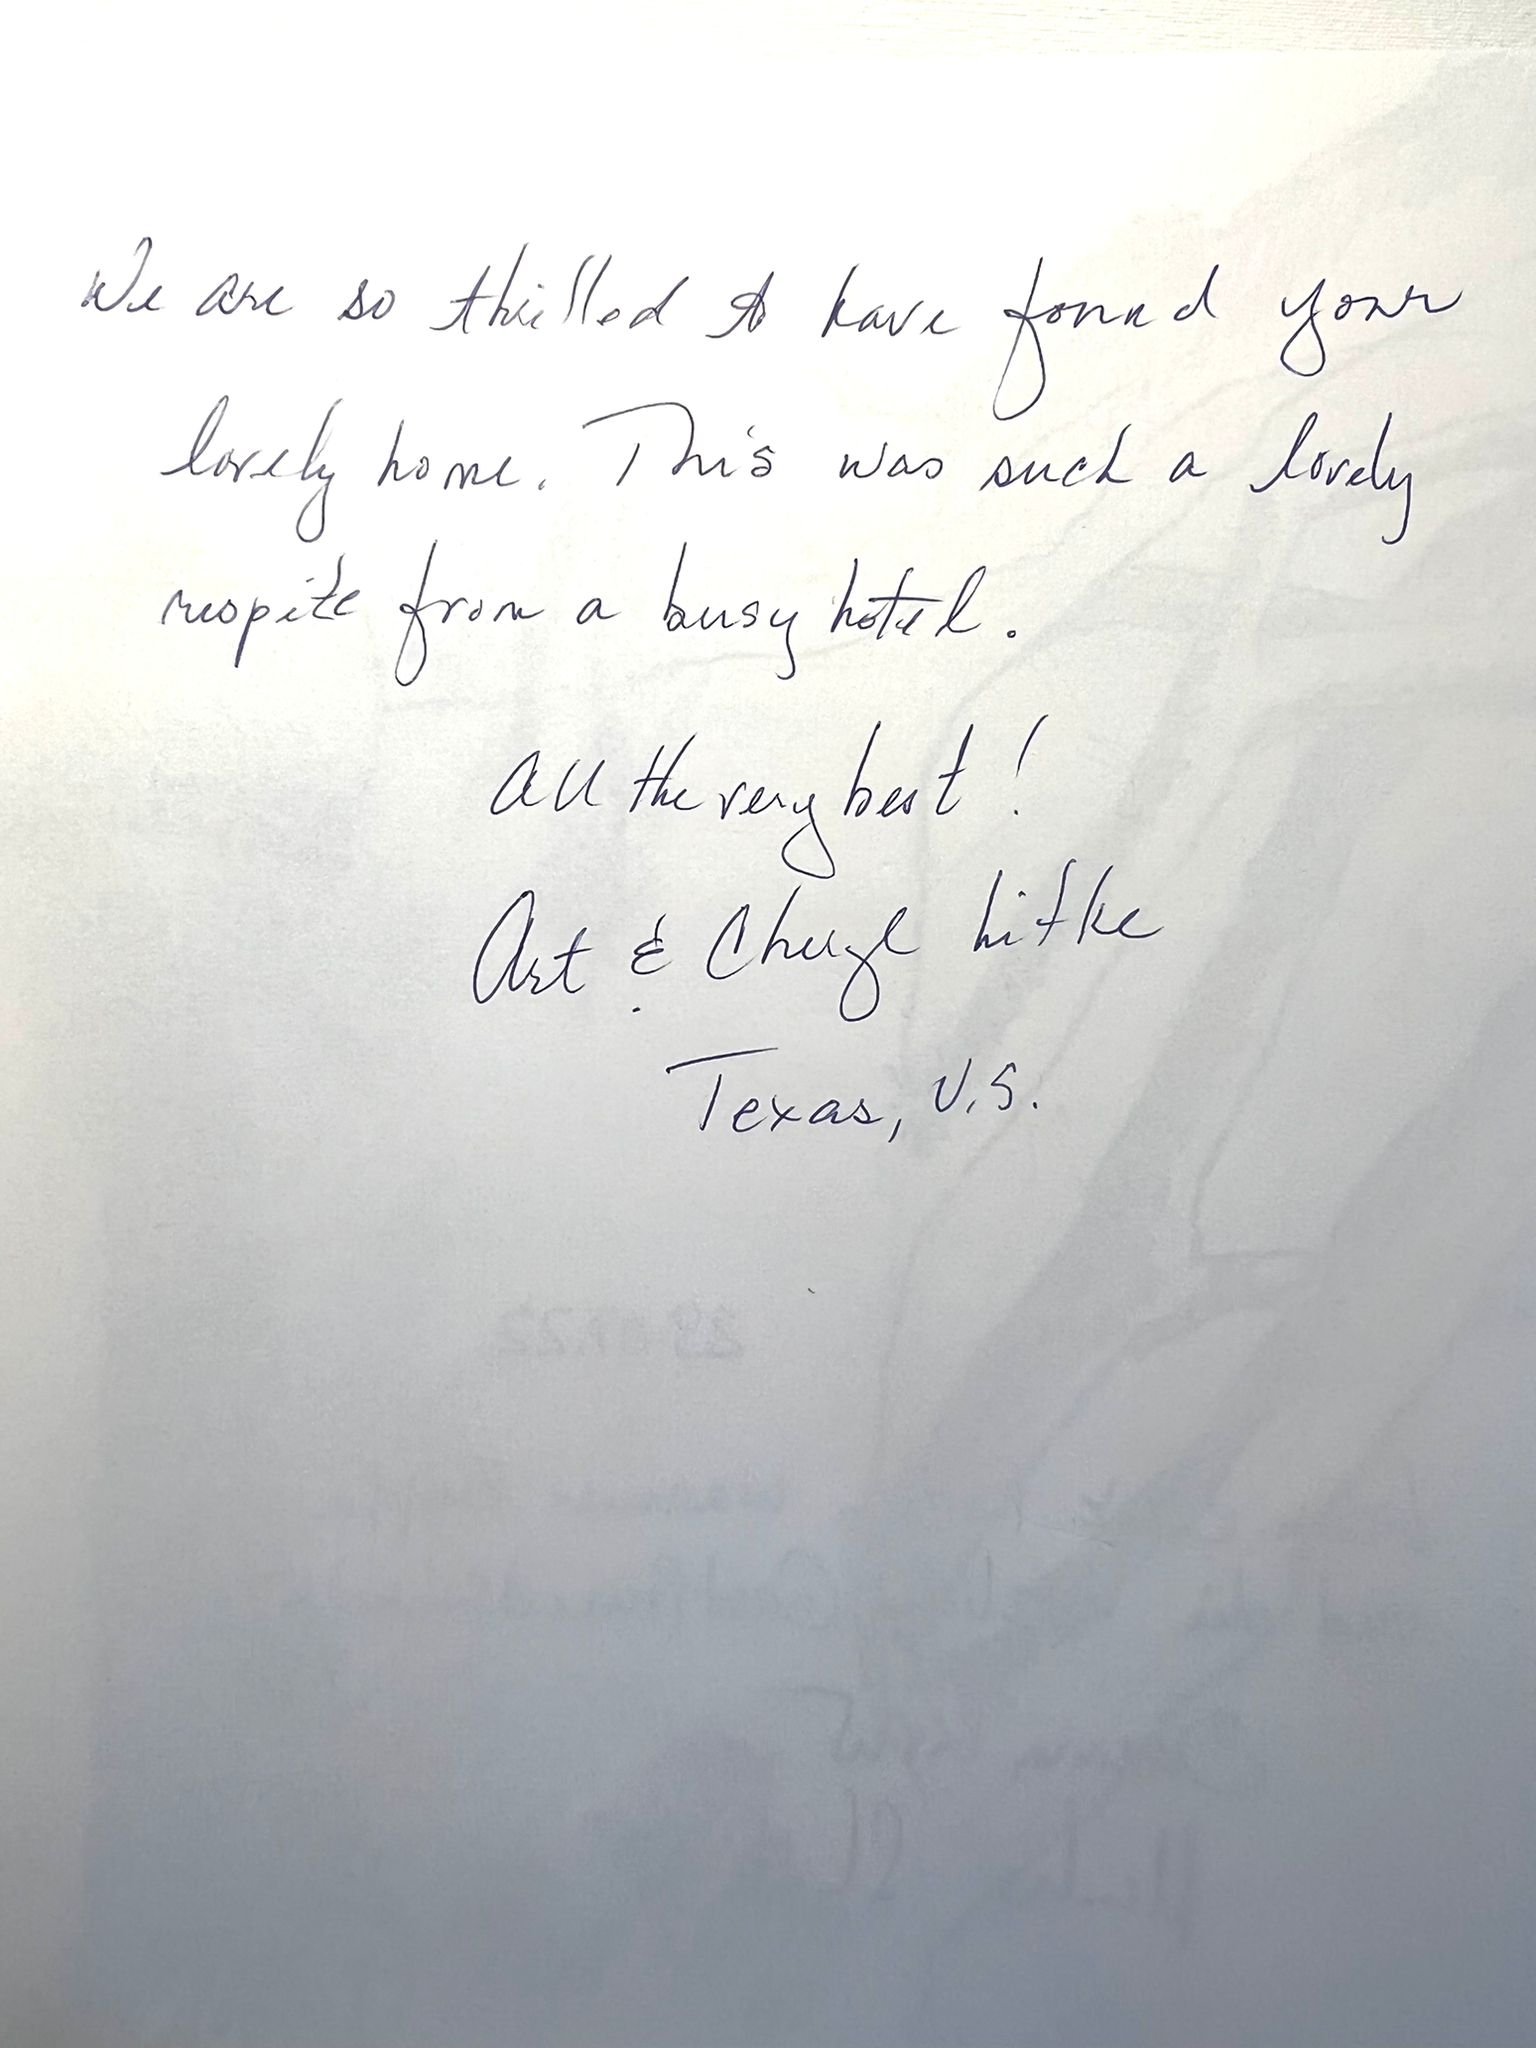 We are so thrilled to have found your
lovely home. This was such a lovely
respite from a busy hotel.
All the very best!
Art & Cheryl Litke
Texas, U.S.